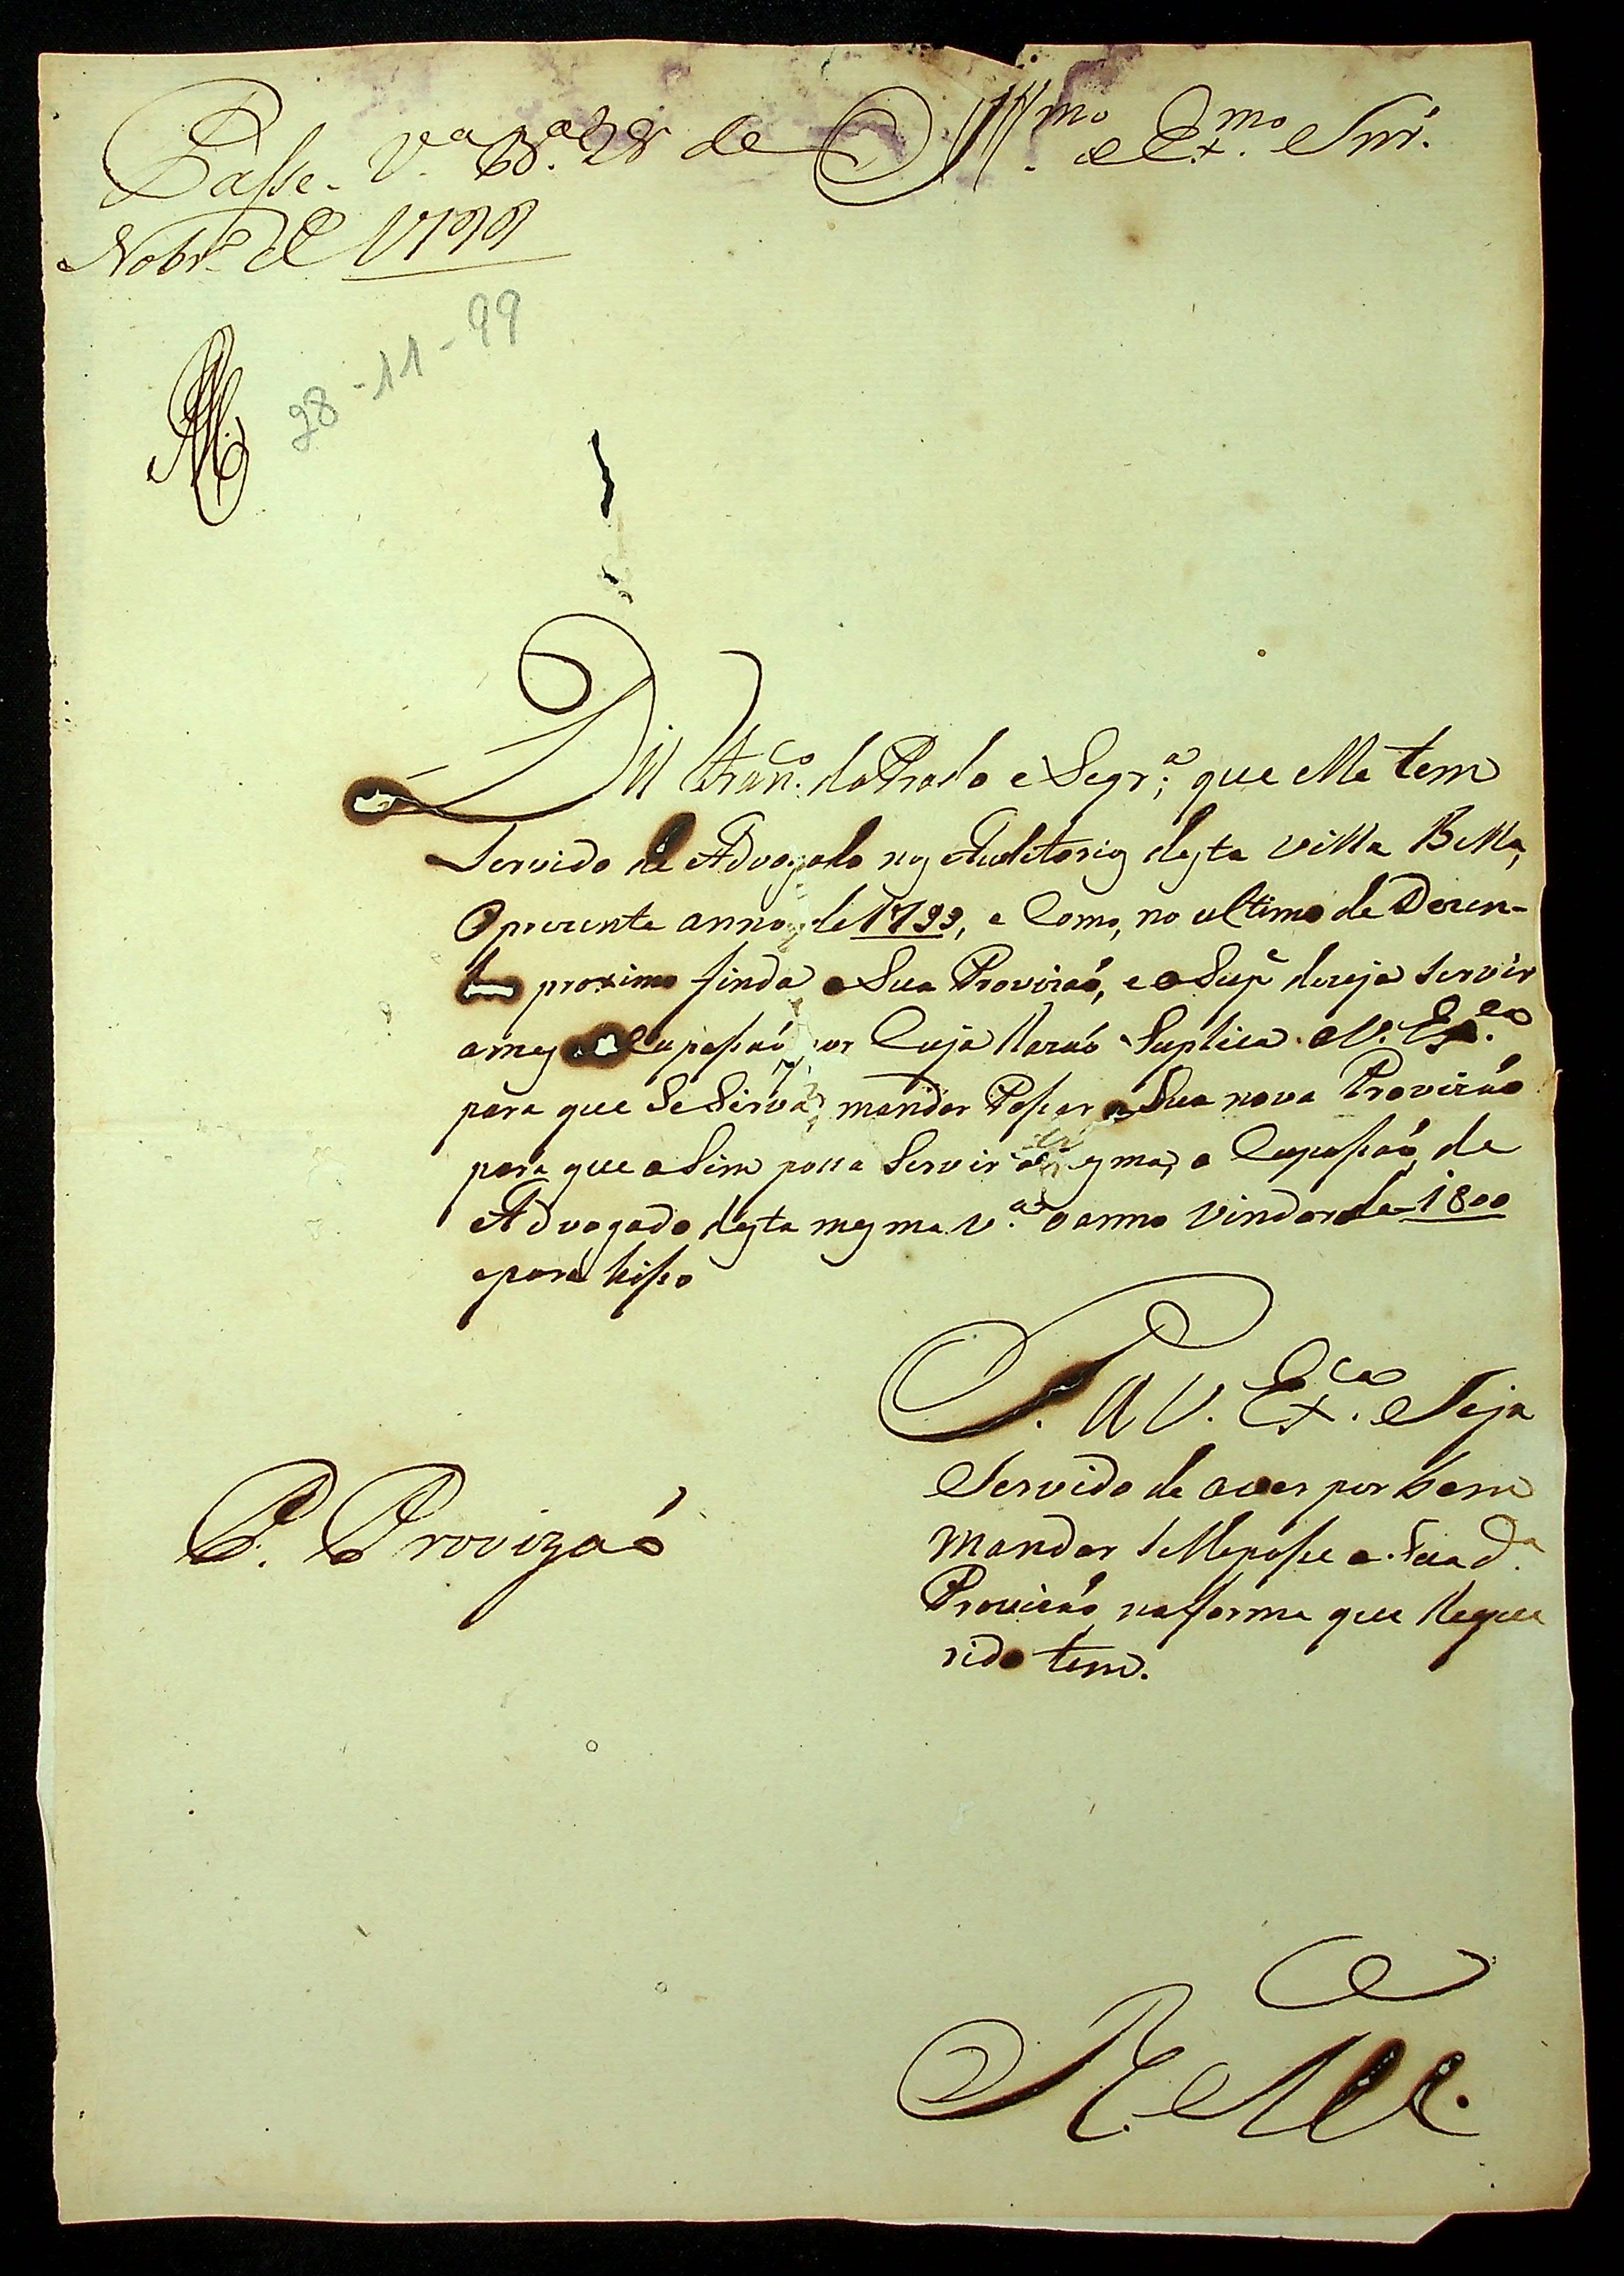 Passe. V.ª B.ª 28 de
Novbr.º de 1799
28-11-99
Ill.mo e Ex.mo Snr.
Diz Fran.co do Prado e Segr.ª; que elle tem
Servido de Advogado nos Auditorios desta Villa Bella,
O prezente anno de 1799, e Como, no ultimo de Dezem-
bro proximo finda a Sua Provizaõ, e o Sup.e dezeja Servir
a mes Cupasaõ, por Cuja Razaõ Suplica a V. Ex.cia
para que Se Sirva mandar Passar a Sua nova Provizaõ
para que aSim possa Servir a mesma Cupasaõ de
Advogado desta mesma V.ª o anno Vindoro de 1800
e para hisso
P. A V. Ex.ca Seja
Servido de aver por bem
Mandar Selhe passe a Sua d.ª
Provizaõ na forma que Reque
rido tem.
P. Provizaõ
E. R. Mce.